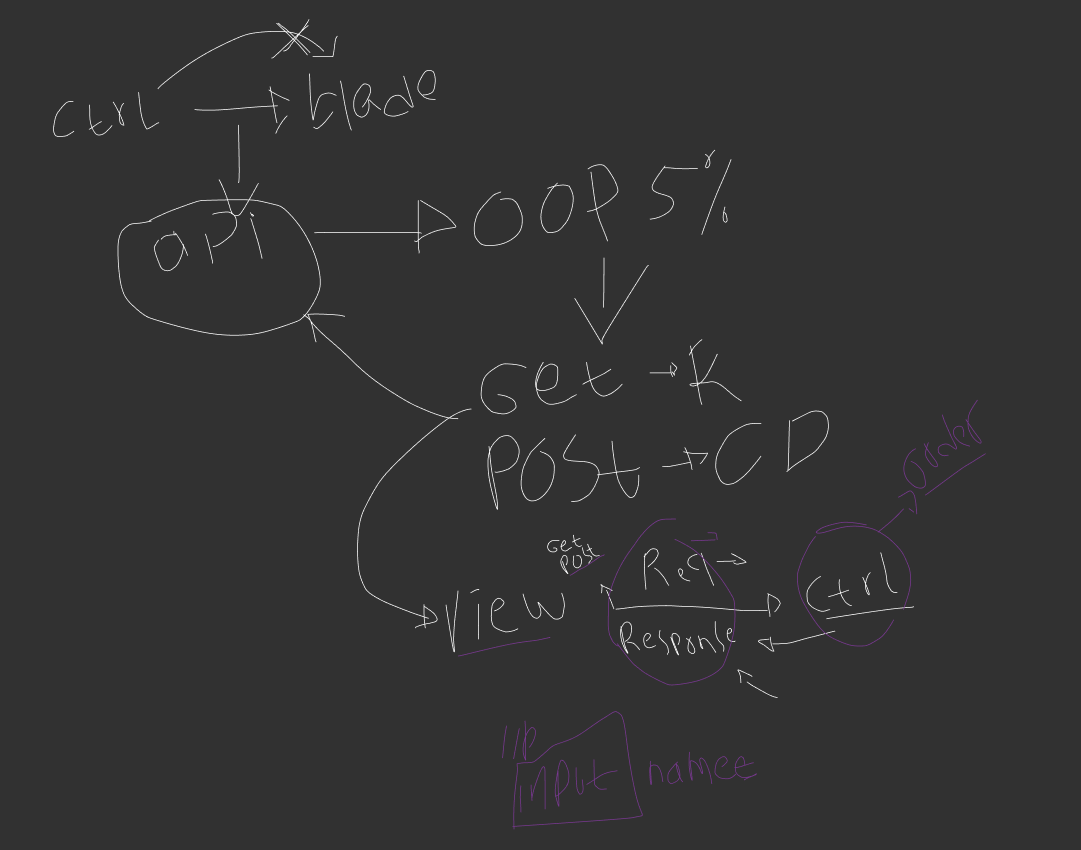 ctrl blade
api OOP 5%
Get K
POST CD
order
Get
POST
Req
ctrl
View
Response
input namee